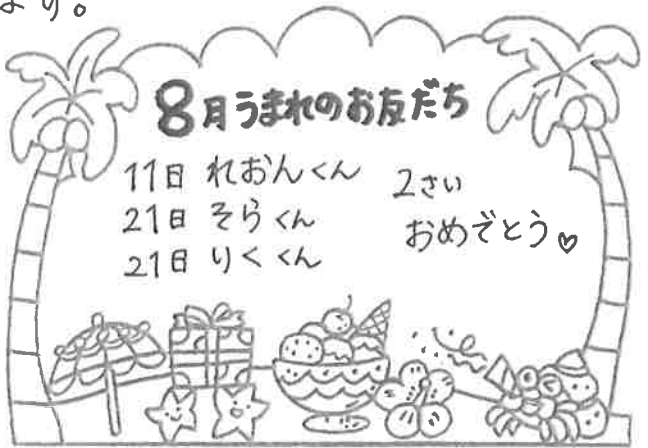 より。
8月うまれのお友だち
11日 れおんくん
21日 そらくん
21日 りくくん
2さい
おめでとう♡